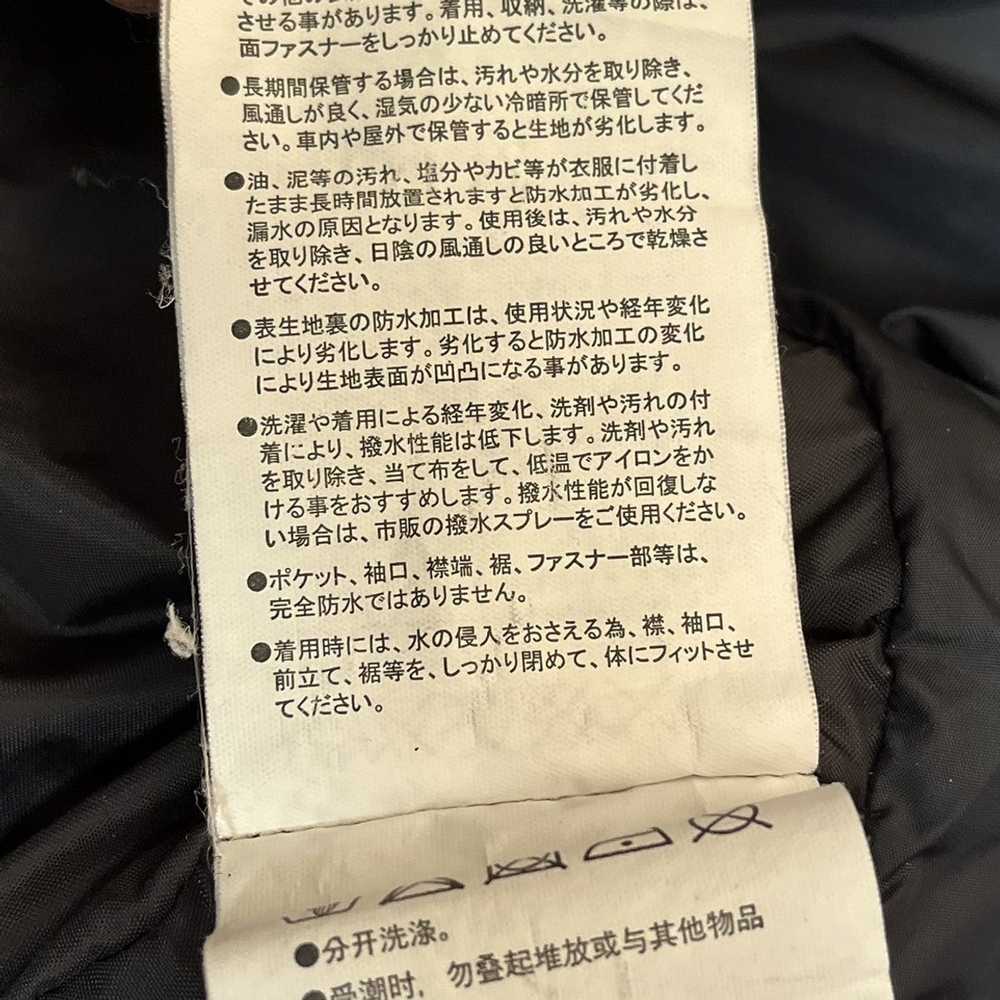 させる事があります。着用、収納、洗濯等の際は、
面ファスナーをしっかり止めてください。
●長期間保管する場合は、汚れや水分を取り除き、
風通しが良く、湿気の少ない冷暗所で保管してくだ
さい。車内や屋外で保管すると生地が劣化します。
●油、泥等の汚れ、塩分やカビ等が衣服に付着し
たまま長時間放置されますと防水加工が劣化し、
漏水の原因となります。使用後は、汚れや水分
を取り除き、日陰の風通しの良いところで乾燥さ
せてください。
●表生地裏の防水加工は、使用状況や経年変化
により劣化します。劣化すると防水加工の変化
により生地表面が凹凸になる事があります。
●洗濯や着用による経年変化、洗剤や汚れの付
着により、撥水性能は低下します。洗剤や汚れ
を取り除き、当て布をして、低温でアイロンをか
ける事をおすすめします。撥水性能が回復しな
い場合は、市販の撥水スプレーをご使用ください。
●ポケット、袖口、襟端、裾、ファスナー部等は、
完全防水ではありません。
●着用時には、水の侵入をおさえる為、襟、袖口、
前立て、裾等を、しっかり閉めて、体にフィットさせ
てください。
●分开洗涤。
●受潮时，勿叠起堆放或与其他物品